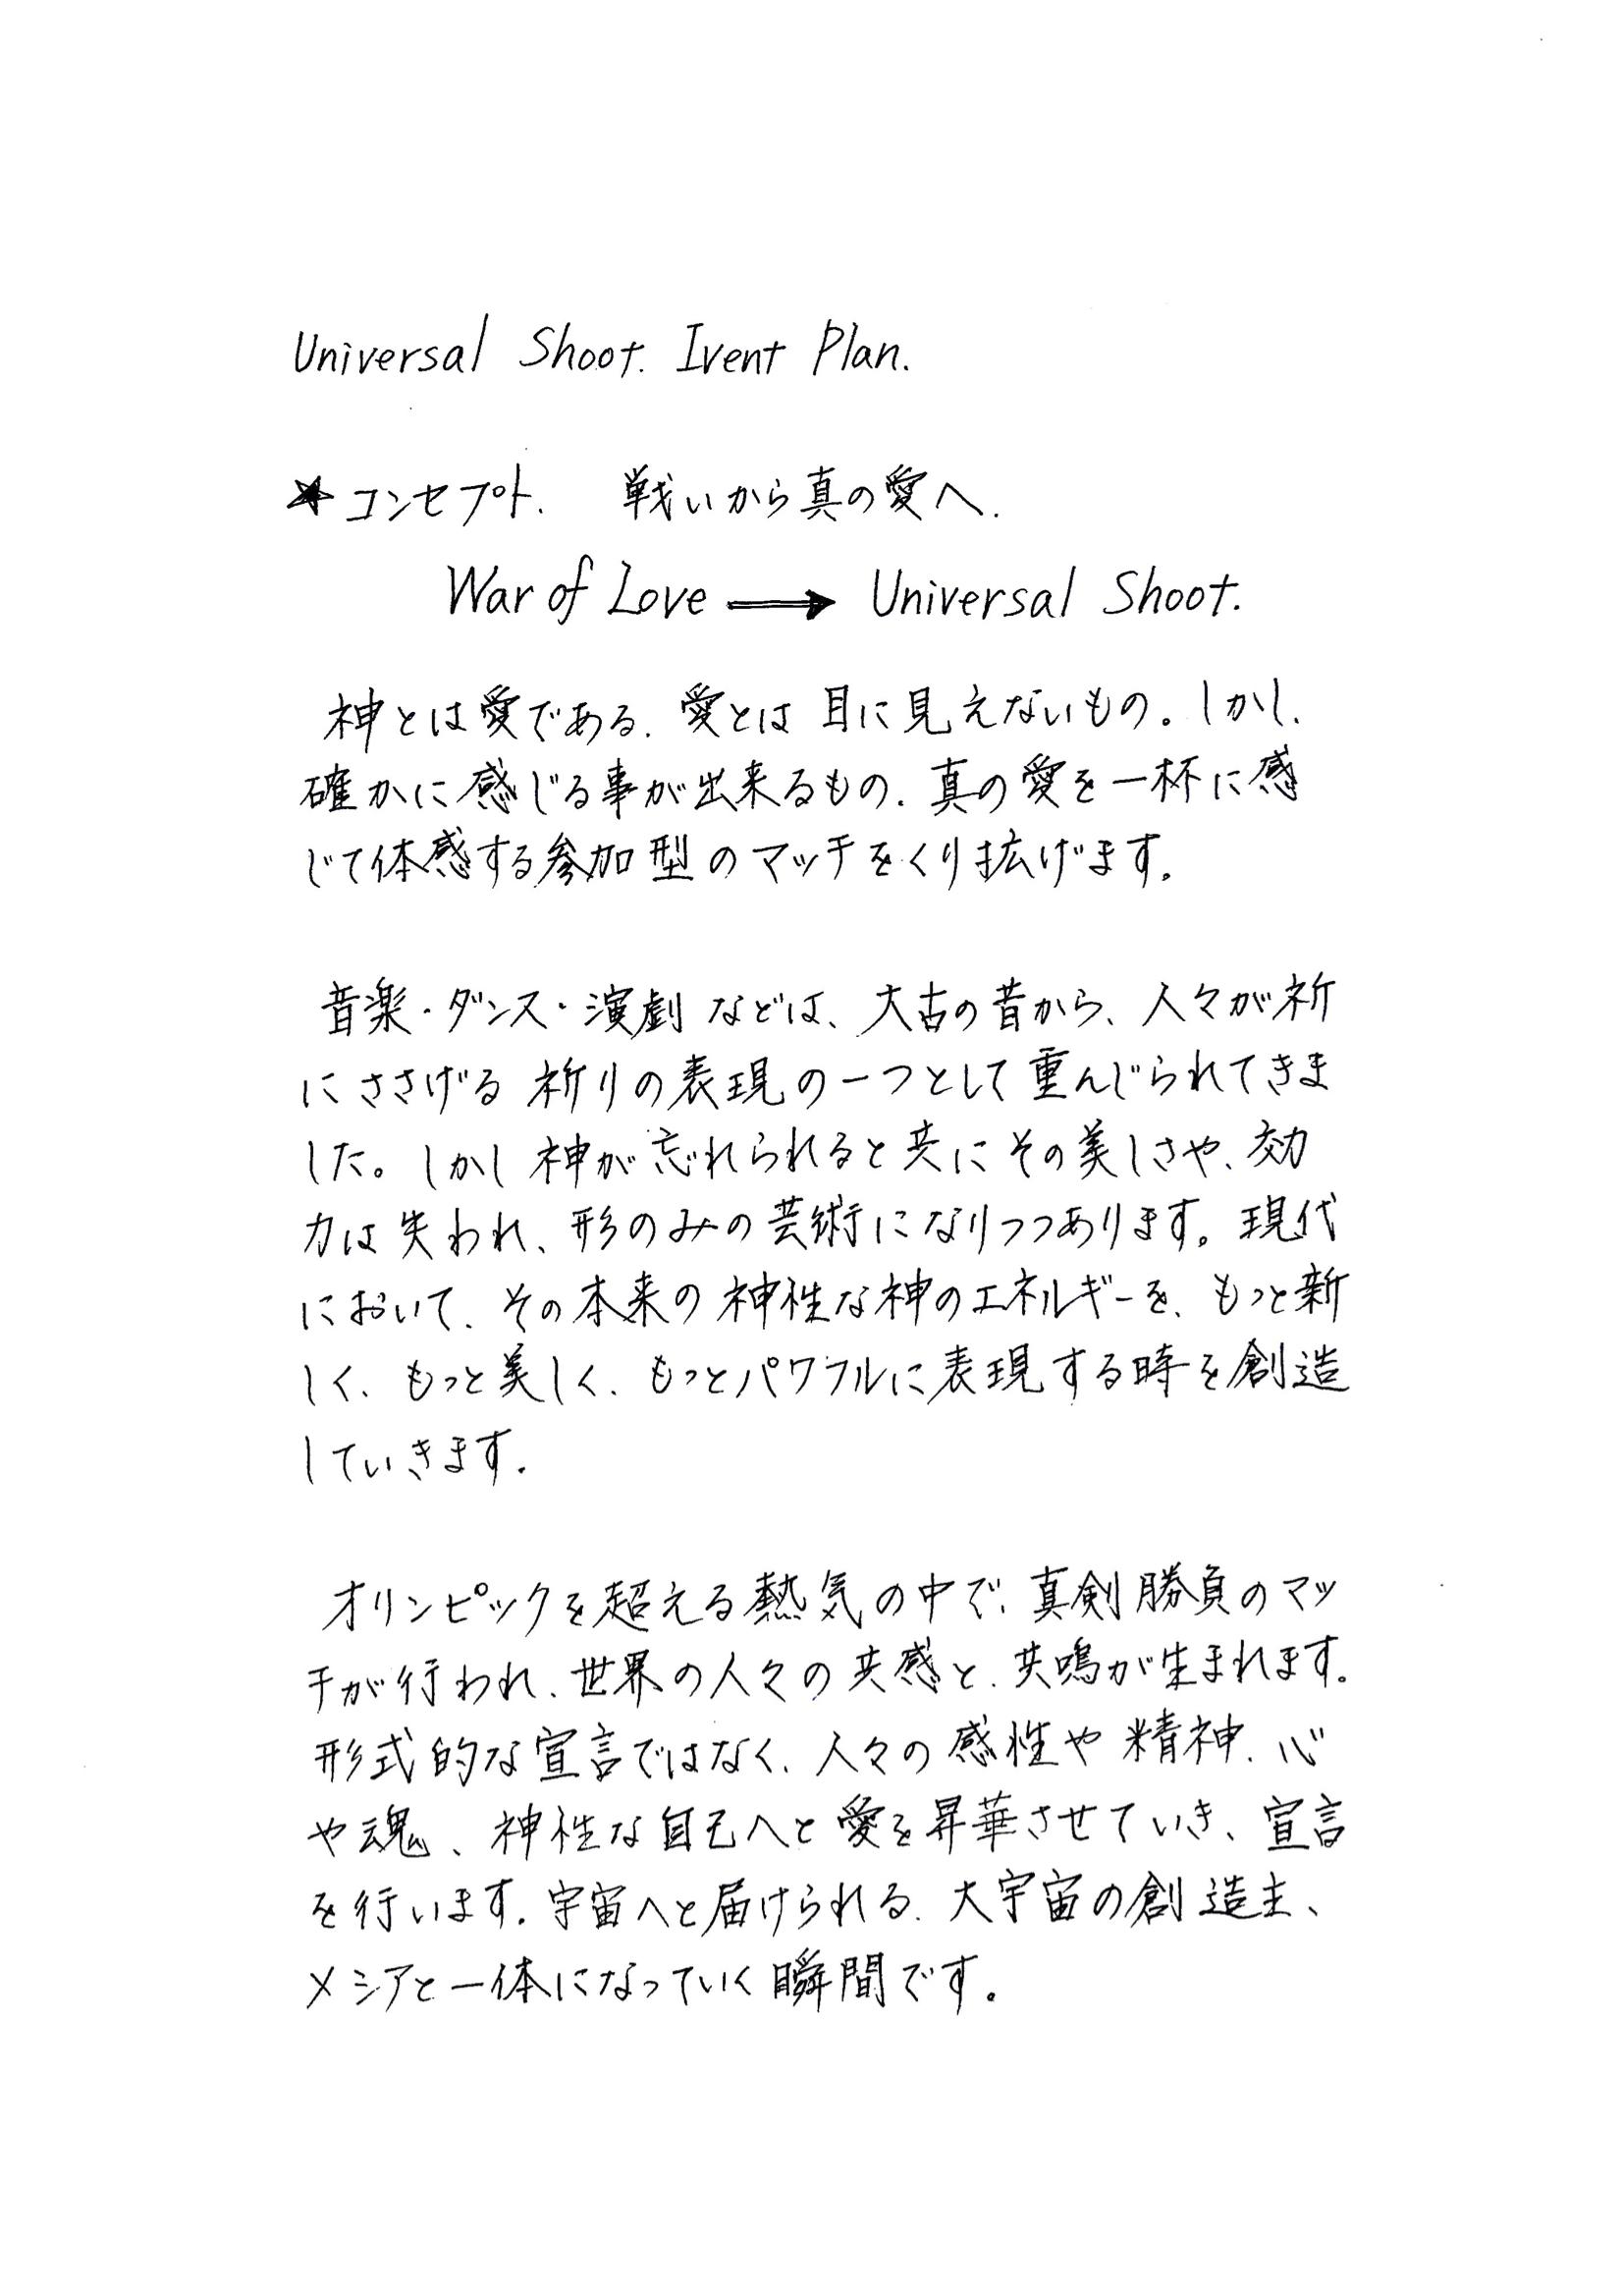 Universal Shoot. Ivent Plan.
★コンセプト. 戦いから真の愛へ.
War of Love → Universal Shoot.
神とは愛である. 愛とは目に見えないもの。しかし、
確かに感じる事が出来るもの. 真の愛を一杯に感
じて体感する参加型のマッチをくり拡げます。
音楽・ダンス・演劇などは、大古の昔から、人々が祈
にささげる祈りの表現の一つとして重んじられてきま
した。しかし神が忘れられると共にその美しさや、効
力は失われ、形のみの芸術になりつつあります。現代
において、その本来の神性な神のエネルギーを、もっと新
しく、もっと美しく、もっとパワフルに表現する時を創造
していきます.
オリンピックを超える熱気の中で、真剣勝負のマッ
チが行われ、世界の人々の共感と、共鳴が生まれます。
形式的な宣言ではなく、人々の感性や精神、心
や魂、神性な自己へと愛を昇華させていき、宣言
を行います. 宇宙へと届けられる、大宇宙の創造主、
メシアと一体になっていく瞬間です。